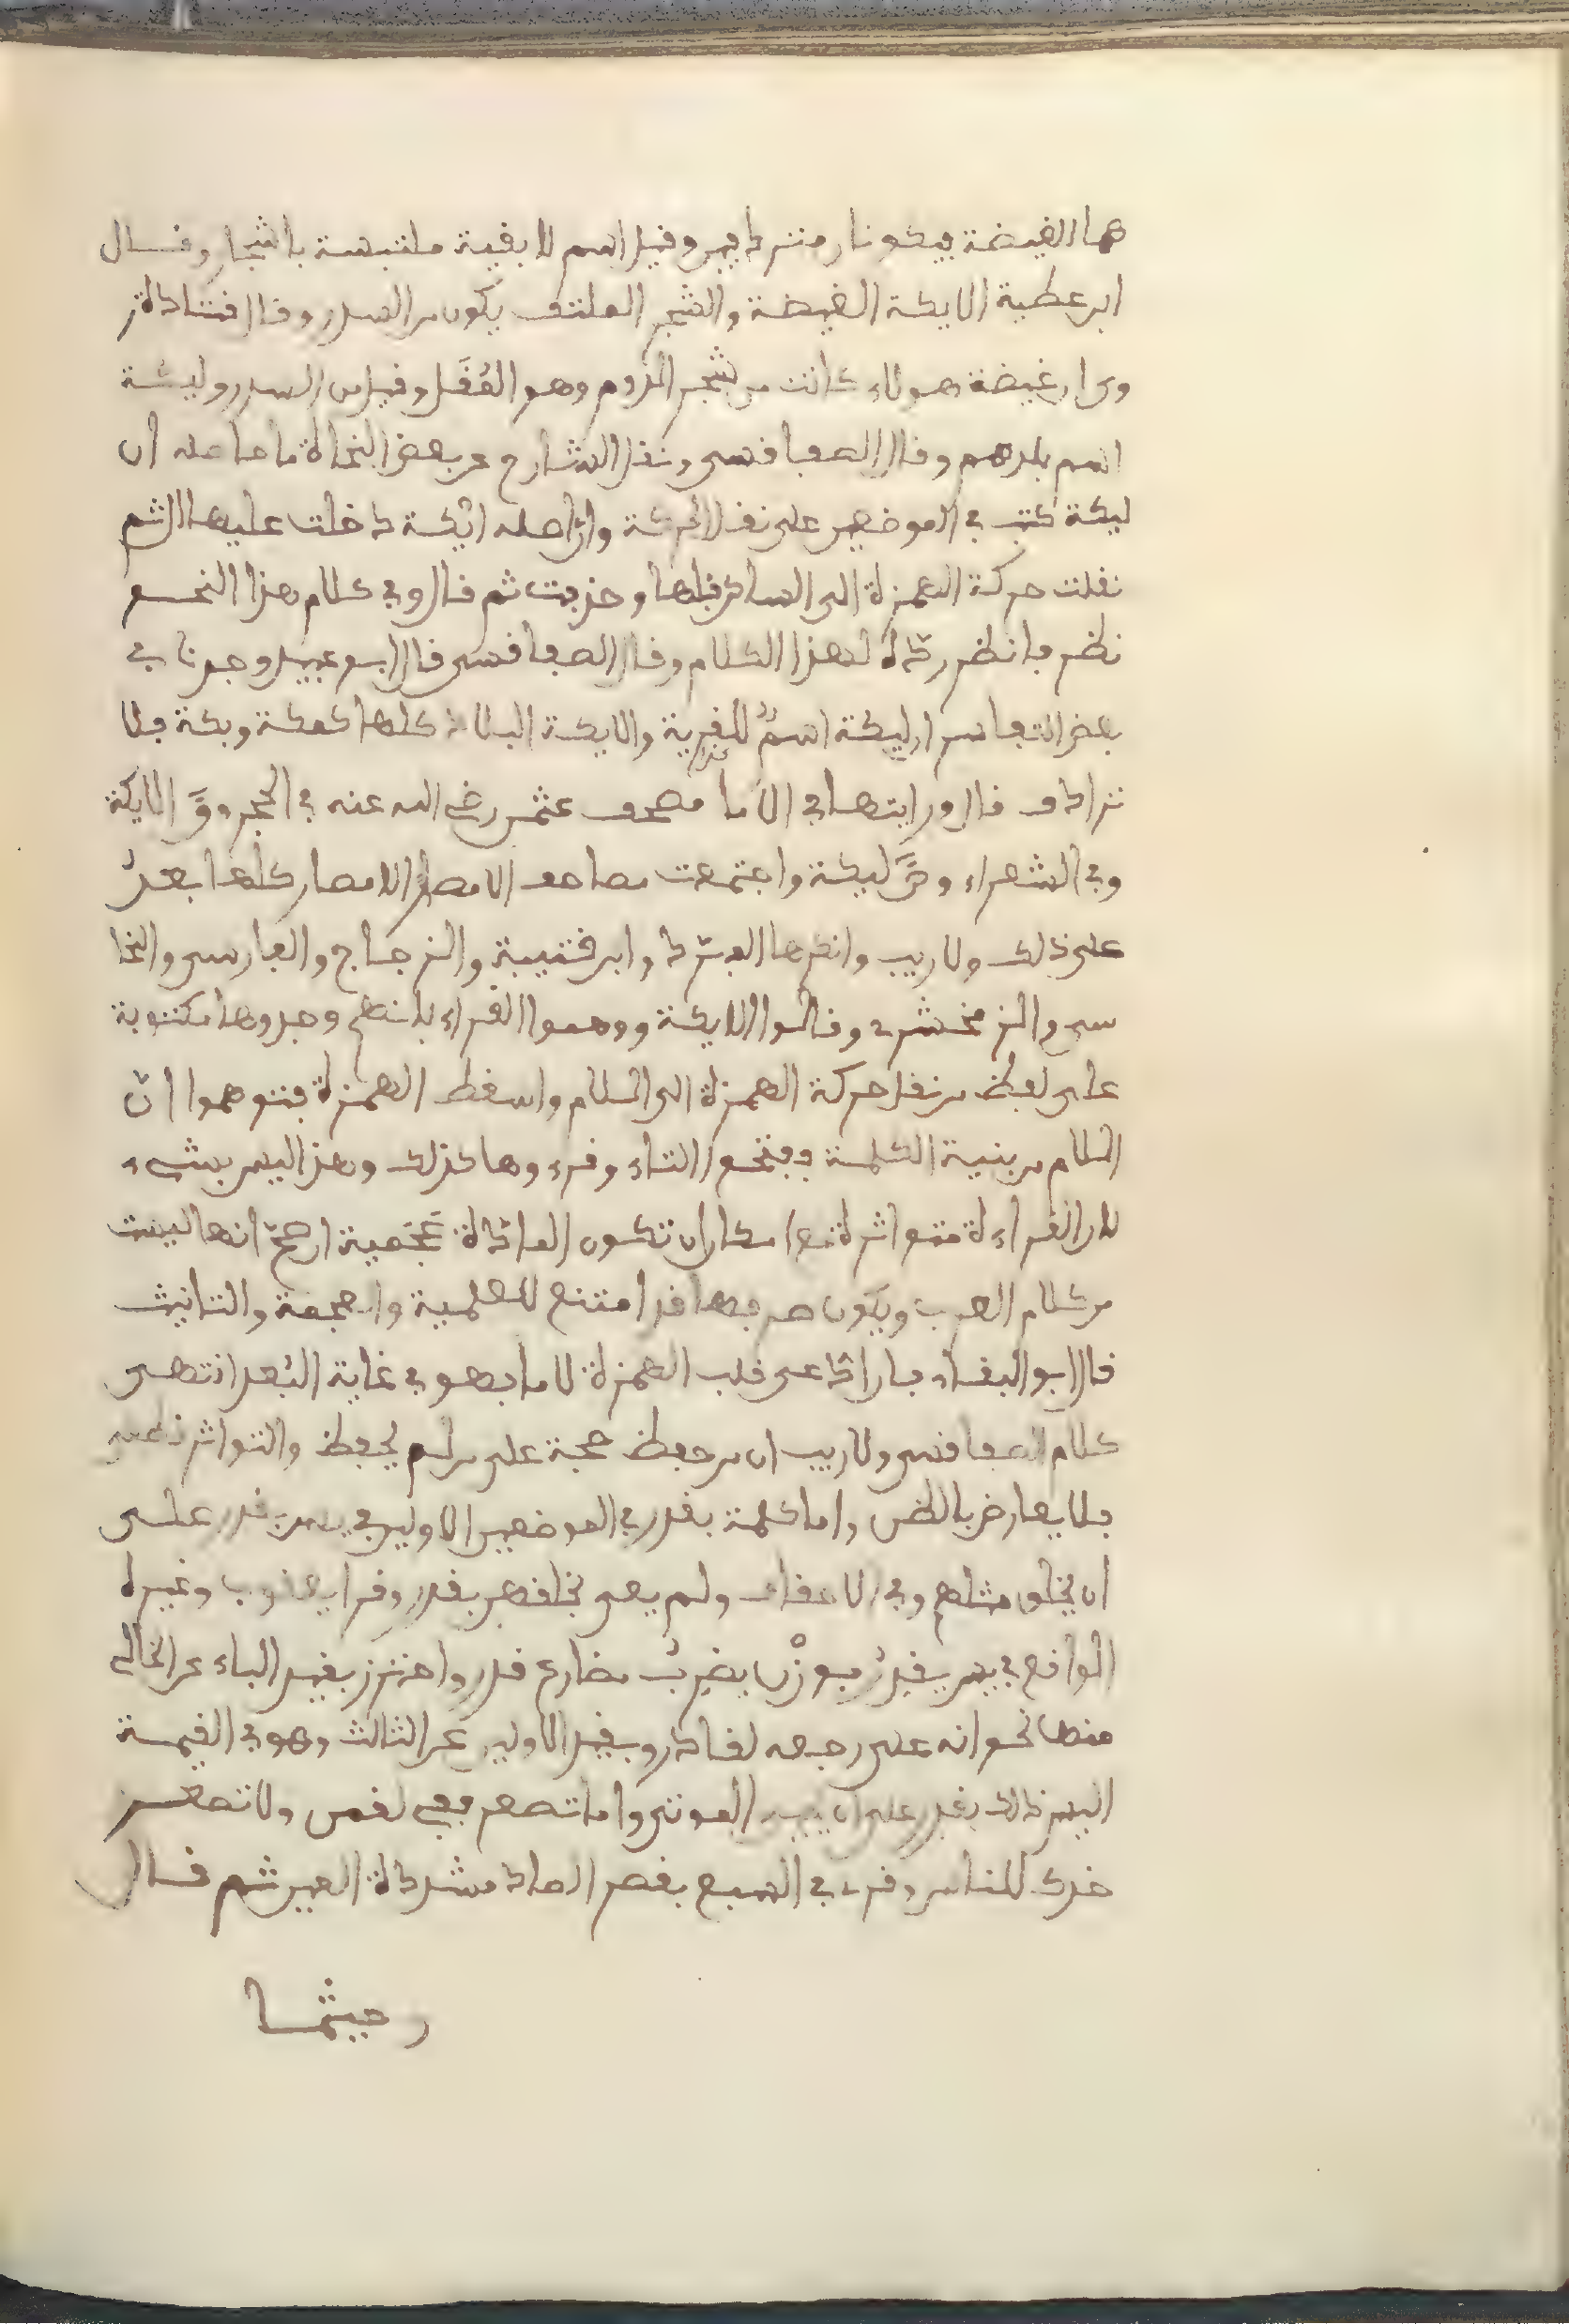 هما الغيضة فيكونان مترادفين وقيل ليكة اسم لابقية ملتبسة باشجار وقال
ابن عطية الايكة الغيضة والشجر الملتف يكون من السدر وقال قتادة
وروي ان غيضة هولاء كانت من شجر الدوم وهو المُقَل وقيل من السدر وليكة
اسم بلدهم وقال الصفاقسي ونقل الشارح عن بعض النحاة ما حاصله ان
ليكة كتب في الموضعين على نقل الحركة وان اصله ايكة دخلت عليها ال ثم
نقلت حركة الهمزة الى الساكن قبلها وحذفت ثم قال وفي كلام هذا النحو
نظر فانظر رده لهذا الكلام وقال الصفاقسي قال ابو عبيد وجدنا في
بعض التفاسير ان ليكة اسمٌ للقرية والايكة البلاد كلها كمكة وبكة فلا
ترادف قال ورايتها في الاما مصحف عثمن رضي الله عنه في الحجر وقَ الايكة
وفي الشعراء وصَ ليكة واجتمعت مصاحف الامصار الامصار كلها بعدُ
على ذلك ولا ريب وانكرها المبرّد وابن قتيبة والزجاج والفارسي والنحا
سي والزمخشري وقالوا الايكة ووهموا القراء بانهم وجدوها مكتوبة
على لفظ من نقل حركة الهمزة الى اللام واسقط الهمزة فتوهموا انّ
اللام من بنية الكلمة ففتحوا التاء وقرءوها كذلك وهذا ليس بشيء
لان القراءة متواترة فامكان ان تكون المادّة عَجَمية ان صحّ انها ليست
من كلام العرب ويكون صرفها قد امتنع للعلمية والعجمة والتانيث
قال ابو البقاء فان ادّعى قلب الهمزة لاما فهو في غاية البُعد انتهى
كلام الصفاقسي ولا ريب ان من حفظ حجة على من لم يحفظ والتواتر قطعي
فلا يعارض بالظن واما كلمة بقدر في الموضعين الاولين في يس بقدر على
ان يخلق مثلهم وفي الاحقاف ولم يعي بخلقهن بقدر وقرا يعقوب وغيره
الواقع في يس يقدِرُ بوزْن يضرِبُ مضارع قدر واحترز بقيد الباء عن الخالي
منها نحو انه على رجعه لقادر وبقيد الاولين عن الثالث وهو في القيمة
اليس ذلك بقدر على ان يحيي الموتى واما تصعر ففي لقمن ولا تصعر
خدك للناس وقرئ في السبع بقصر الصاد مشددة العين ثم قال
وحيثما